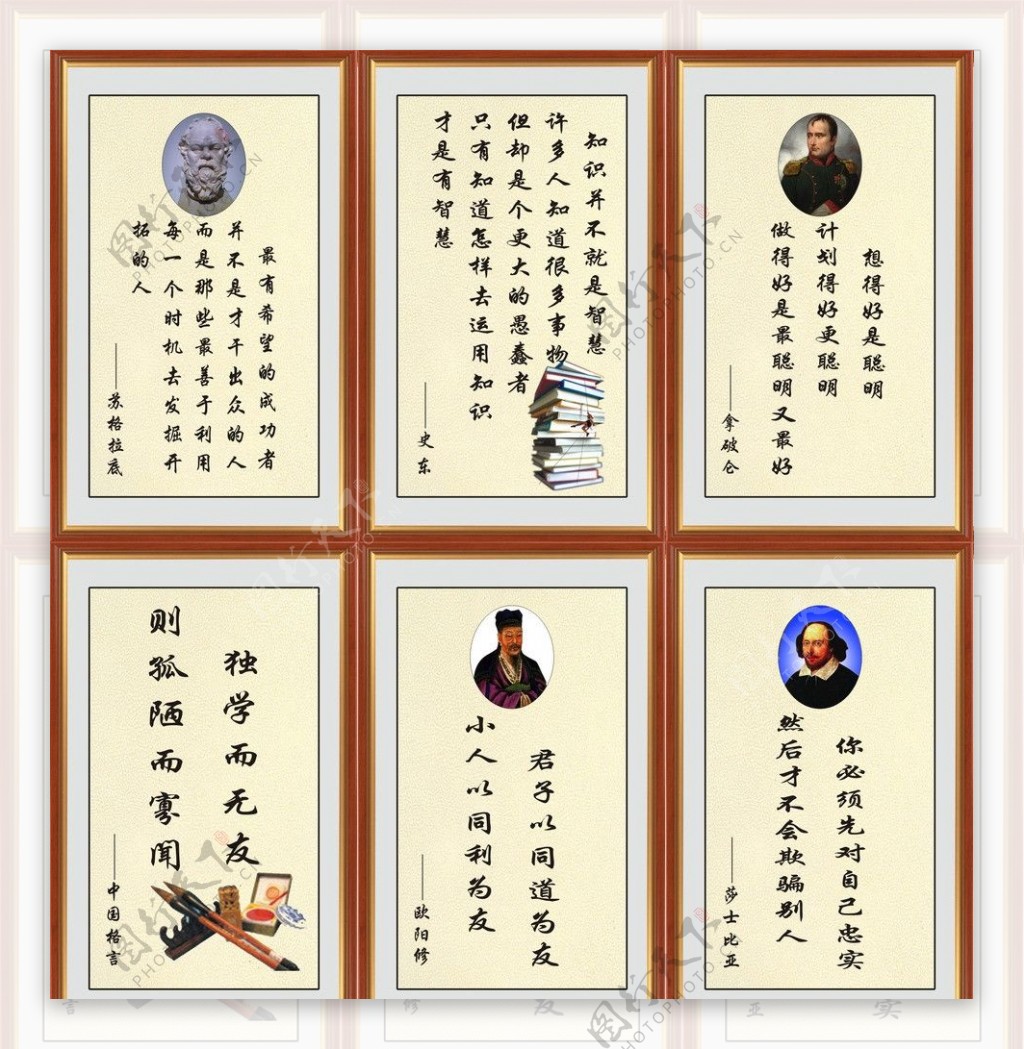 最有希望的成功者
并不是才干出众的人
而是那些最善于利用
每一个时机去发掘开
拓的人
——苏格拉底
知识并不就是智慧
许多人知道很多事物
但却是个更大的愚蠢者
只有知道怎样去运用知识
才是有智慧
——史东
想得好是聪明
计划得好更聪明
做得好是最聪明又最好
——拿破仑
独学而无友
则孤陋而寡闻
——中国格言
君子以同道为友
小人以同利为友
——欧阳修
你必须先对自己忠实
然后才不会欺骗别人
——莎士比亚
图行天下
PHOTOPHOTO.CN